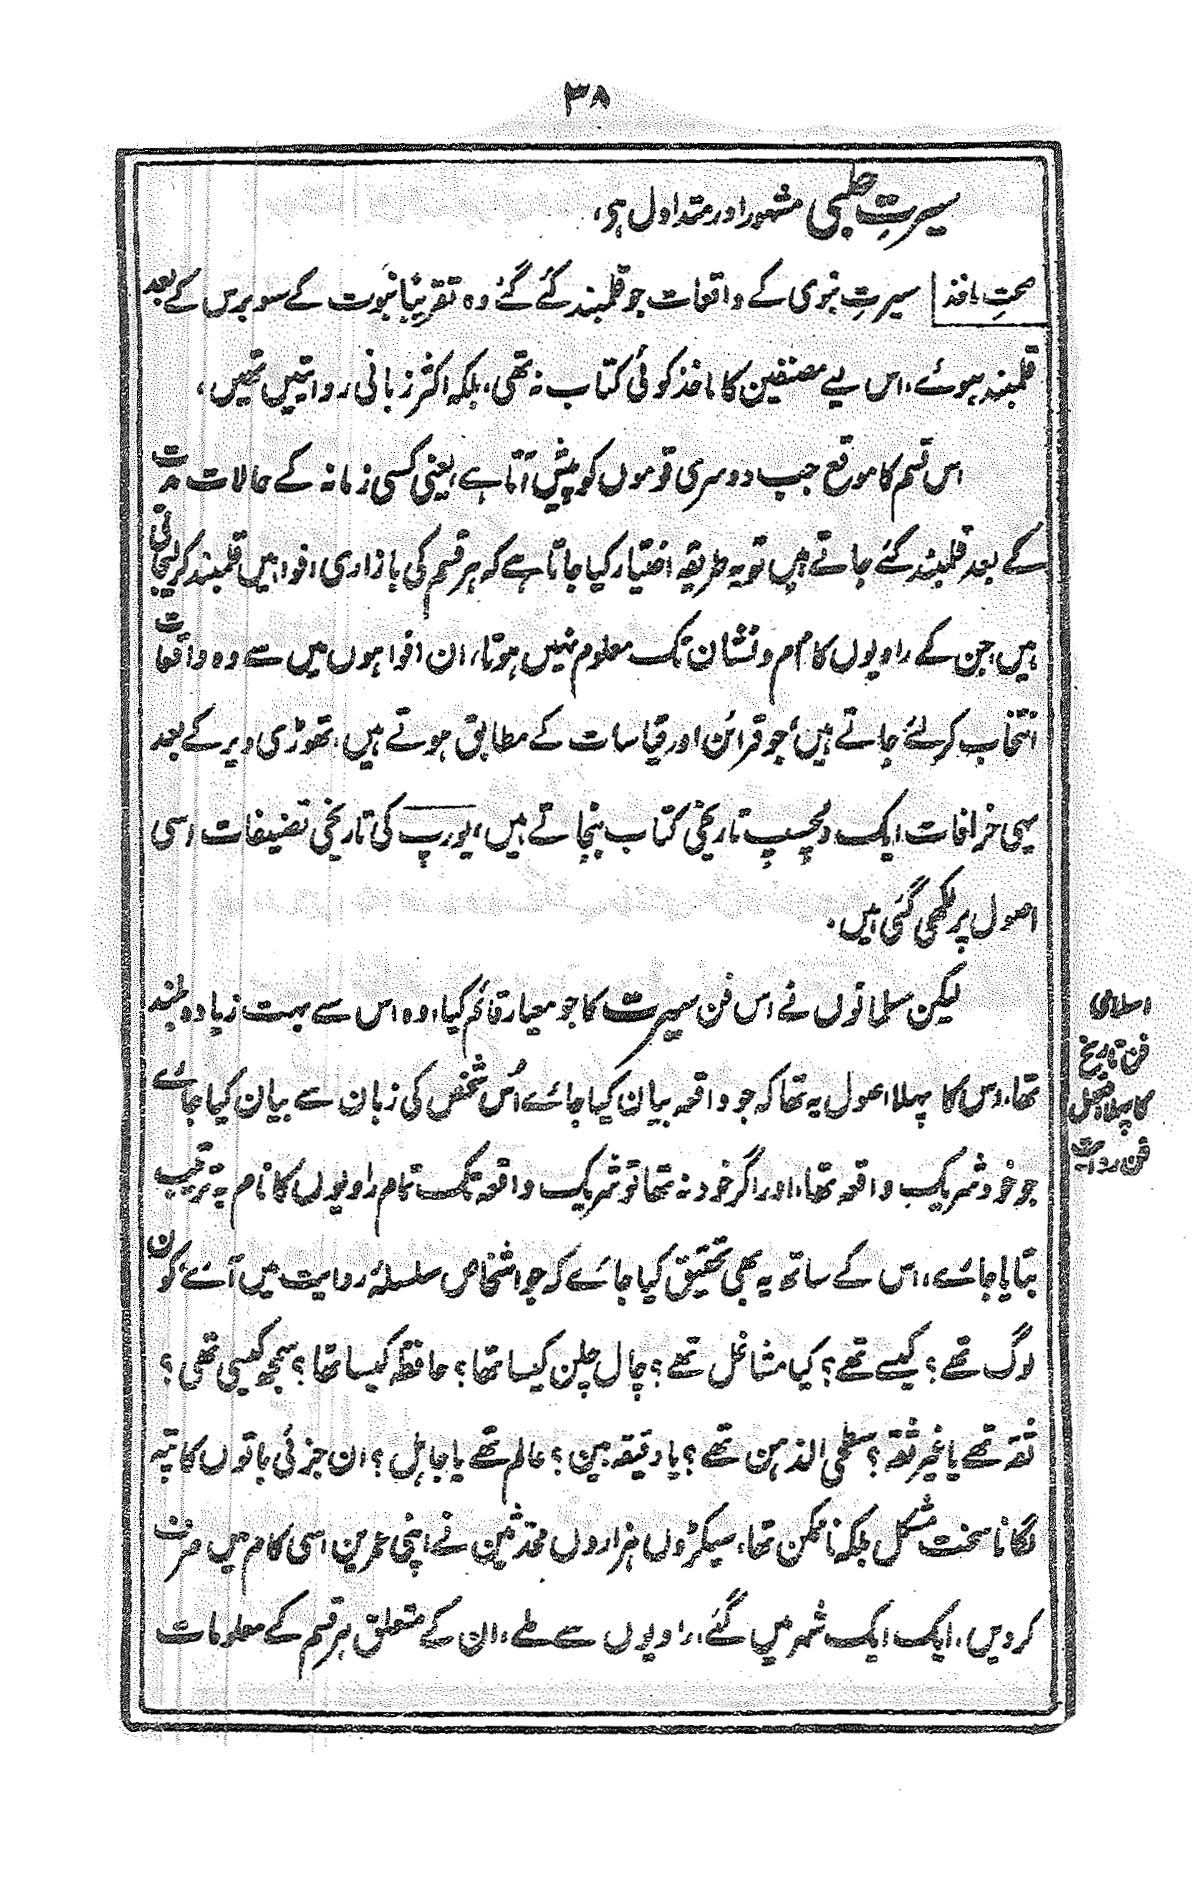 ۳۸
سیرتِ حلبی مشہور اور متداول ہی،
صحتِ ماخذ سیرتِ نبوی کے واقعات جو قلمبند کئے گئے وہ تقریباً نبوت کے سو برس کے بعد
قلمبند ہوئے، اس لیے مصنفین کا ماخذ کوئی کتاب نہ تھی، بلکہ اکثر زبانی روایتیں تھیں،
اس قسم کا موقع جب دوسری قوموں کو پیش آتا ہے، یعنی کسی زمانہ کے حالات مدت
کے بعد قلمبند کئے جاتے ہیں تو یہ طریقہ اختیار کیا جاتا ہے کہ ہر قسم کی بازاری افواہیں قلمبند کرلیجاتی
ہیں، جن کے راویوں کا نام و نشان تک معلوم نہیں ہوتا، ان افواہوں میں سے وہ واقعات
انتخاب کرلئے جاتے ہیں، جو قرائن اور قیاسات کے مطابق ہوتے ہیں، تھوڑی دیر کے بعد
یہی خرافات ایک دلچسپ تاریخی کتاب بنجاتے ہیں، یورپ کی تاریخی تصنیفات اسی
اصول پر لکھی گئی ہیں۔
لیکن مسلمانوں نے اس فن سیرت کا جو معیار قائم کیا، وہ اس سے بہت زیادہ بلند
تھا، اس کا پہلا اصول یہ تھا کہ جو واقعہ بیان کیا جائے اُس شخص کی زبان سے بیان کیا جائے
جو خود شریک واقعہ تھا، اور اگر خود نہ تھا تو شریک واقعہ تک تمام راویوں کا نام بہ ترتیب
بتایا جائے، اس کے ساتھ یہ بھی تحقیق کیا جائے کہ جو اشخاص سلسلۂ روایت میں آئے کون
لوگ تھے؟ کیسے تھے؟ کیا مشاغل تھے؟ چال چلن کیسا تھا؟ حافظہ کیسا تھا؟ سمجھ کیسی تھی؟
ثقہ تھے یا غیر ثقہ؟ سطحی الذہن تھے؟ یا دقیقہ بین؟ عالم تھے یا جاہل؟ ان جزئی باتوں کا پتہ
لگانا سخت مشکل بلکہ ناممکن تھا، سیکڑوں ہزاروں محدثین نے اپنی عمریں اسی کام میں صرف
کردیں، ایک ایک شہر میں گئے، راویوں سے ملے، ان کے متعلق ہر قسم کے معلومات
اسلامی
فن تاریخ
کا پہلا اصول
فن روایت